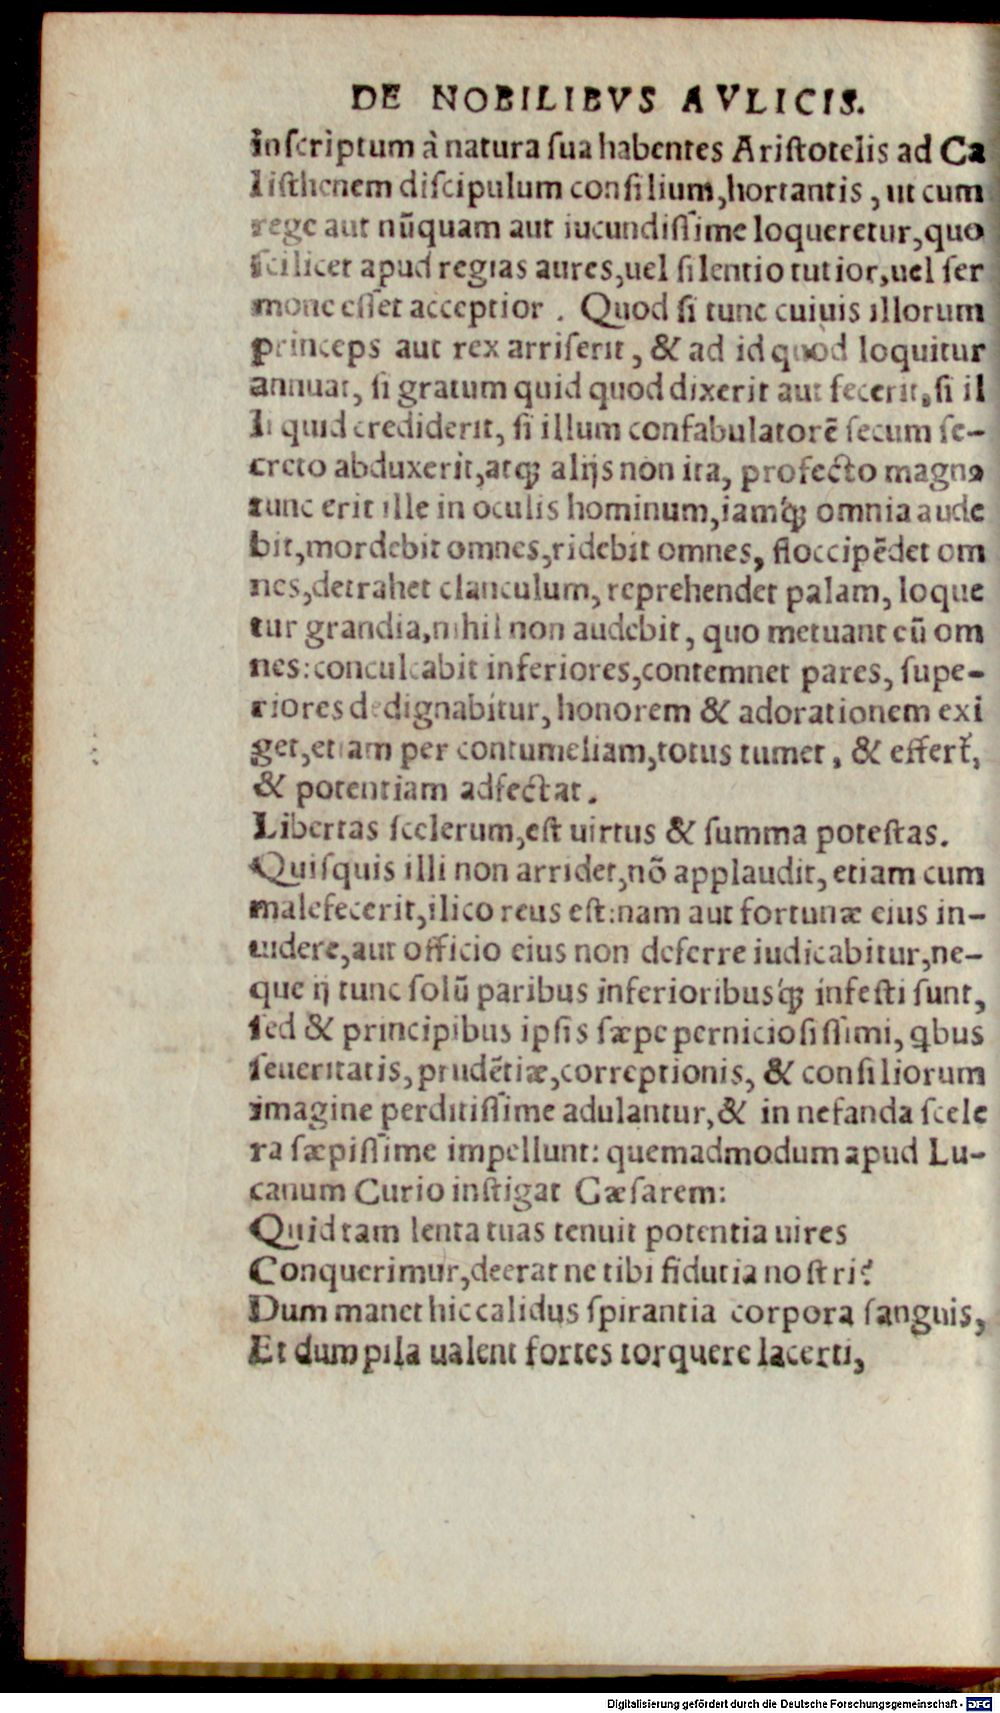 DE NOBILIBVS AVLICIS.
inscriptum à natura sua habentes Aristotelis ad Ca
listhenem discipulum consilium, hortantis, ut cum
rege aut nũquam aut iucundissime loqueretur, quo
scilicet apud regias aures, uel silentio tutior, uel ser
mone esset acceptior. Quod si tunc cuiuis illorum
princeps aut rex arriserit, & ad id quod loquitur
annuat, si gratum quid quod dixerit aut fecerit, si il
li quid crediderit, si illum confabulatorẽ secum se-
creto abduxerit, atq; alijs non ita, profecto magna
tunc erit ille in oculis hominum, iamq́; omnia aude
bit, mordebit omnes, ridebit omnes, floccipẽdet om
nes, detrahet clanculum, reprehendet palam, loque
tur grandia, nihil non audebit, quo metuant eũ om
nes: conculcabit inferiores, contemnet pares, supe-
riores dedignabitur, honorem & adorationem exi
get, etiam per contumeliam, totus tumet, & effert̃,
& potentiam adfectat.
Libertas scelerum, est uirtus & summa potestas.
Quisquis illi non arridet, nõ applaudit, etiam cum
malefecerit, ilico reus est: nam aut fortunæ eius in-
uidere, aut officio eius non deferre iudicabitur, ne-
que ij tunc solũ paribus inferioribusq́; infesti sunt,
sed & principibus ipsis sæpe perniciosissimi, ꝗbus
seueritatis, prudẽtiæ, correptionis, & consiliorum
imagine perditissime adulantur, & in nefanda scele
ra sæpissime impellunt: quemadmodum apud Lu-
canum Curio instigat Cæsarem:
Quid tam lenta tuas tenuit potentia uires
Conquerimur, deerat ne tibi fiducia nostri?
Dum manet hic calidus spirantia corpora sanguis,
Et dum pila ualent fortes torquere lacerti,
Digitalisierung gefördert durch die Deutsche Forschungsgemeinschaft - DFG